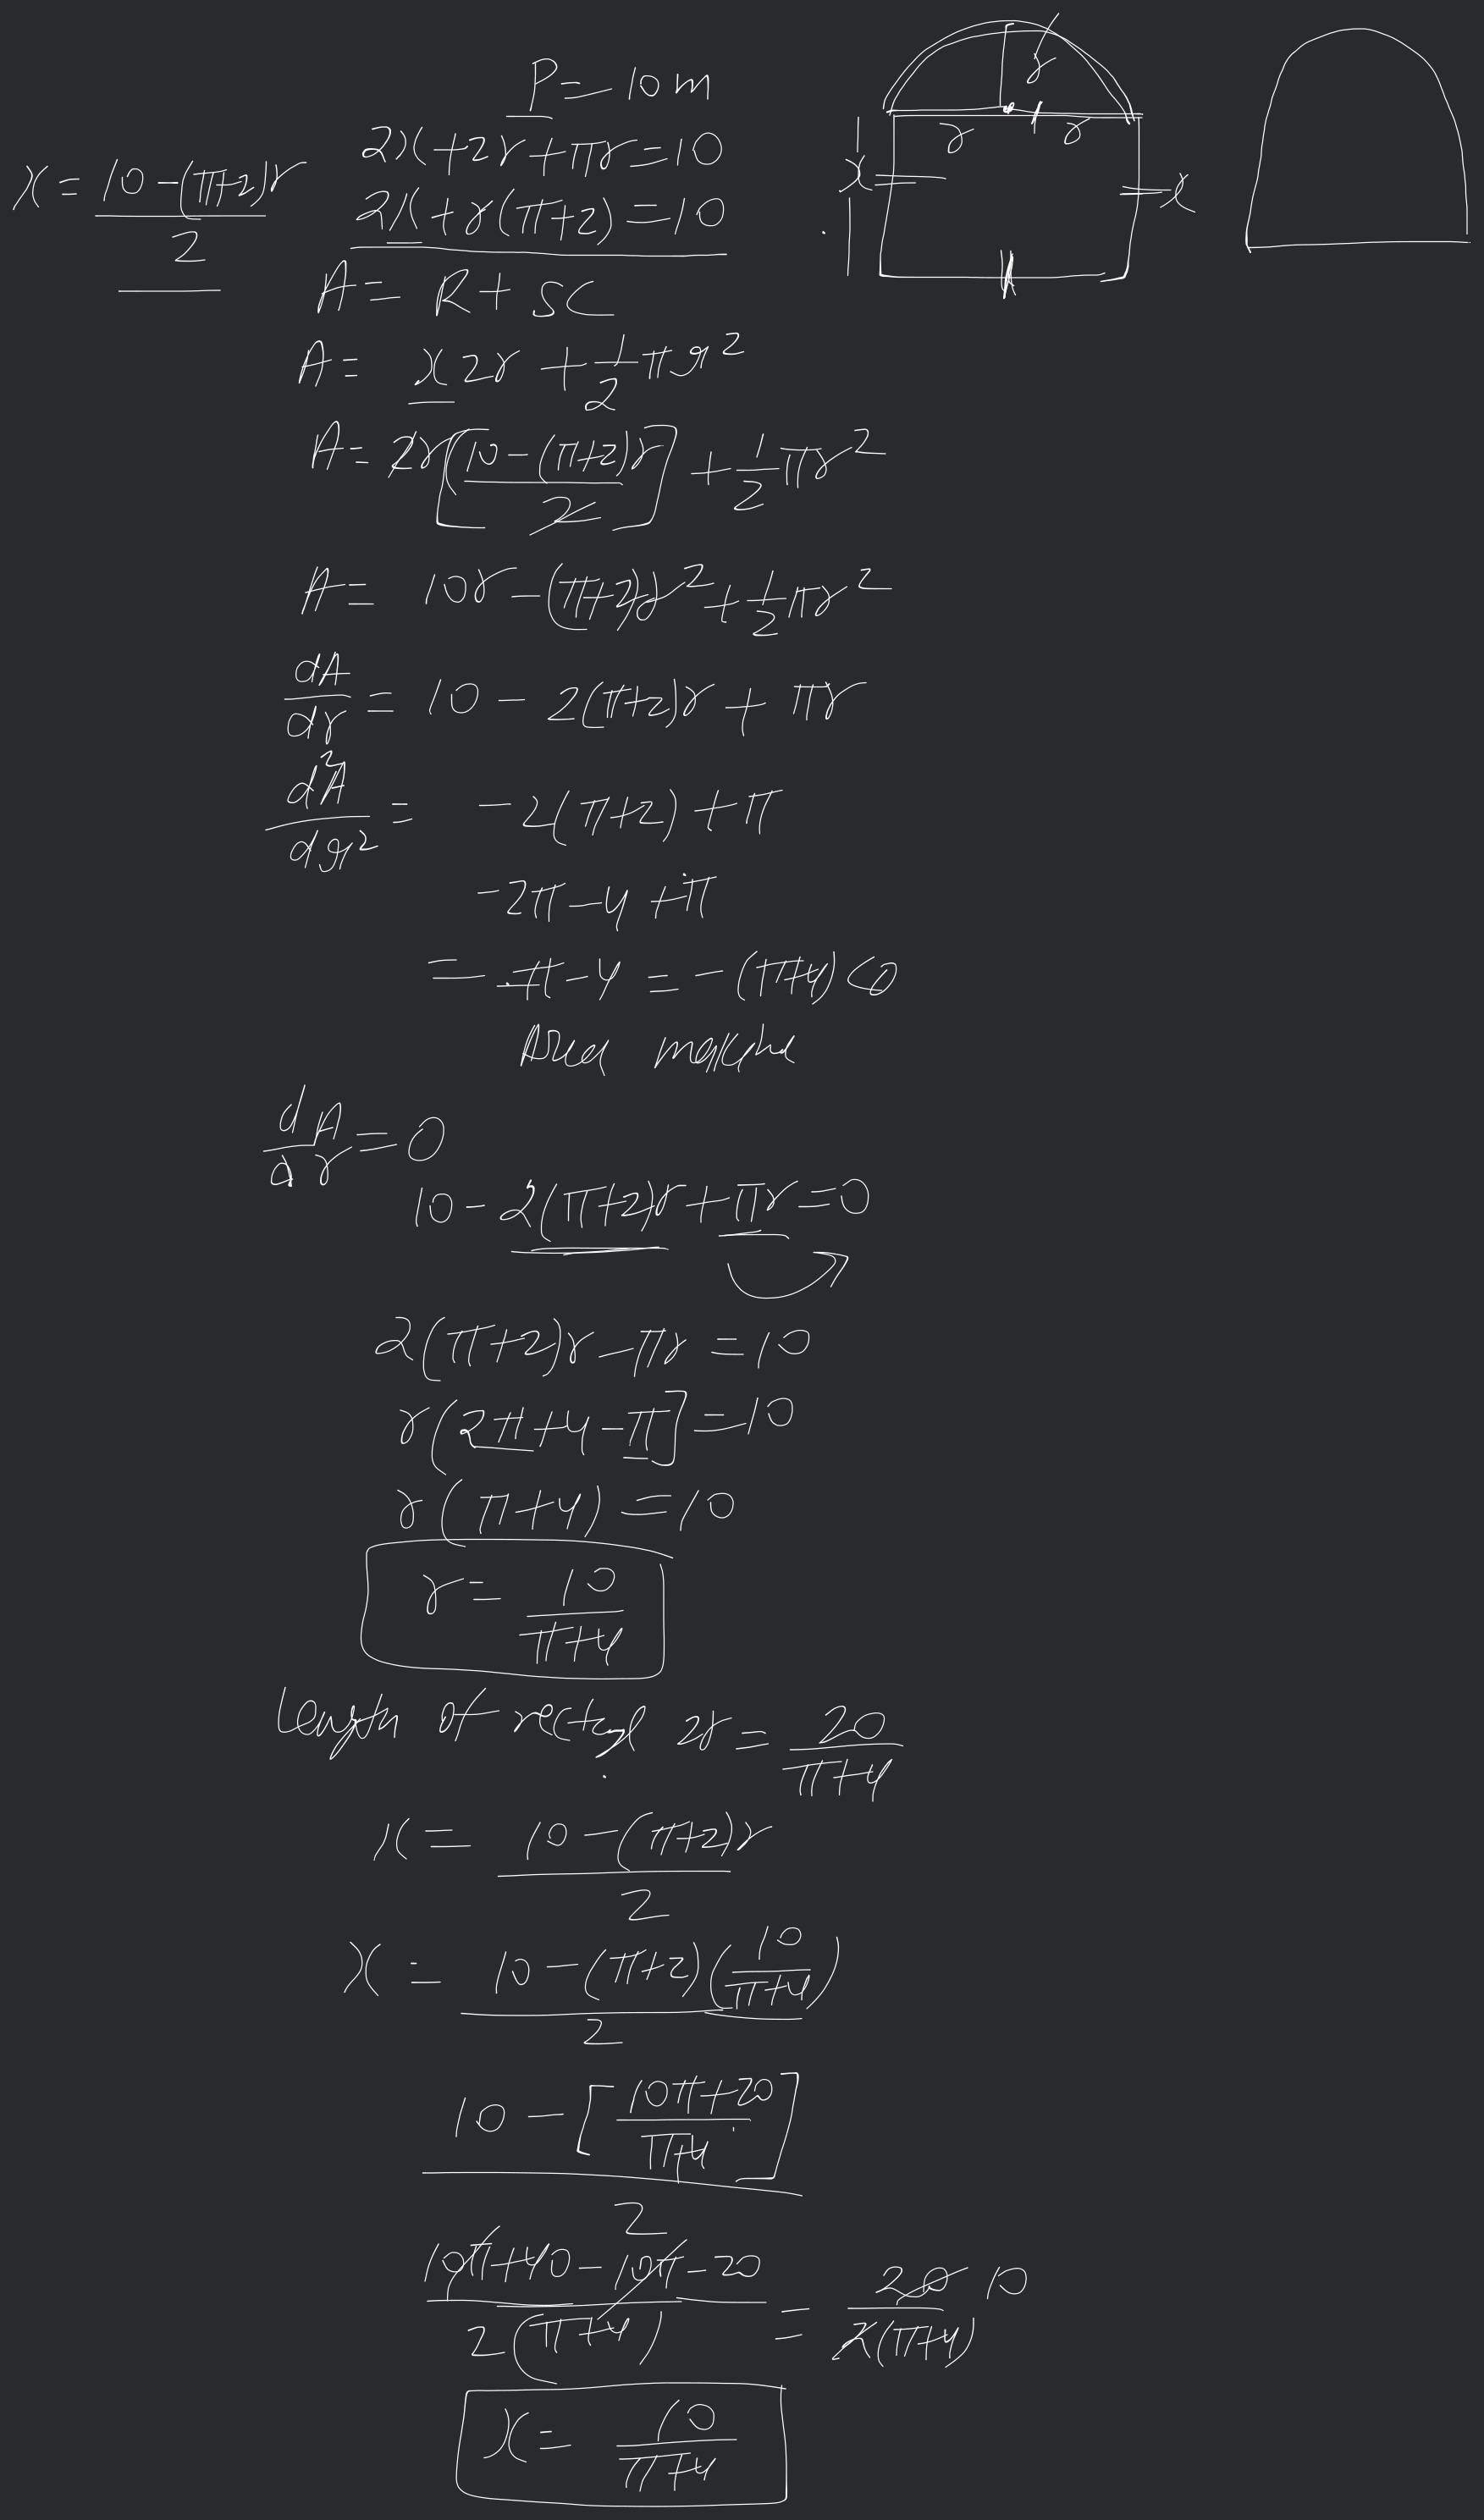 P = 10m
2x + 2r + πr = 10
x = 10 - (π+2)r / 2
2x + r(π+2) = 10
r
r r
x = = x
A = R + SC
A = x 2r + 1/2 πr²
A = 2r [(10 - (π+2)r) / 2] + 1/2 πr²
A = 10r - (π+2)r² + 1/2 πr²
dA/dr = 10 - 2(π+2)r + πr
d²A/dr² = -2(π+2) + π
-2π - 4 + π
= -π - 4 = -(π+4) < 0
dA/dr = 0
10 - 2(π+2)r + πr = 0
2(π+2)r - πr = 10
r(2π + 4 - π] = 10
r(π+4) = 10
r = 10 / π+4
of 2r = 20 / π+4
x = 10 - (π+2)r / 2
x = 10 - (π+2)(10 / π+4) / 2
10 - [10π+20 / π+4] / 2
10π + 40 - 10π - 20 / 2(π+4) = 20 / 2(π+4) 10
x = 10 / π+4